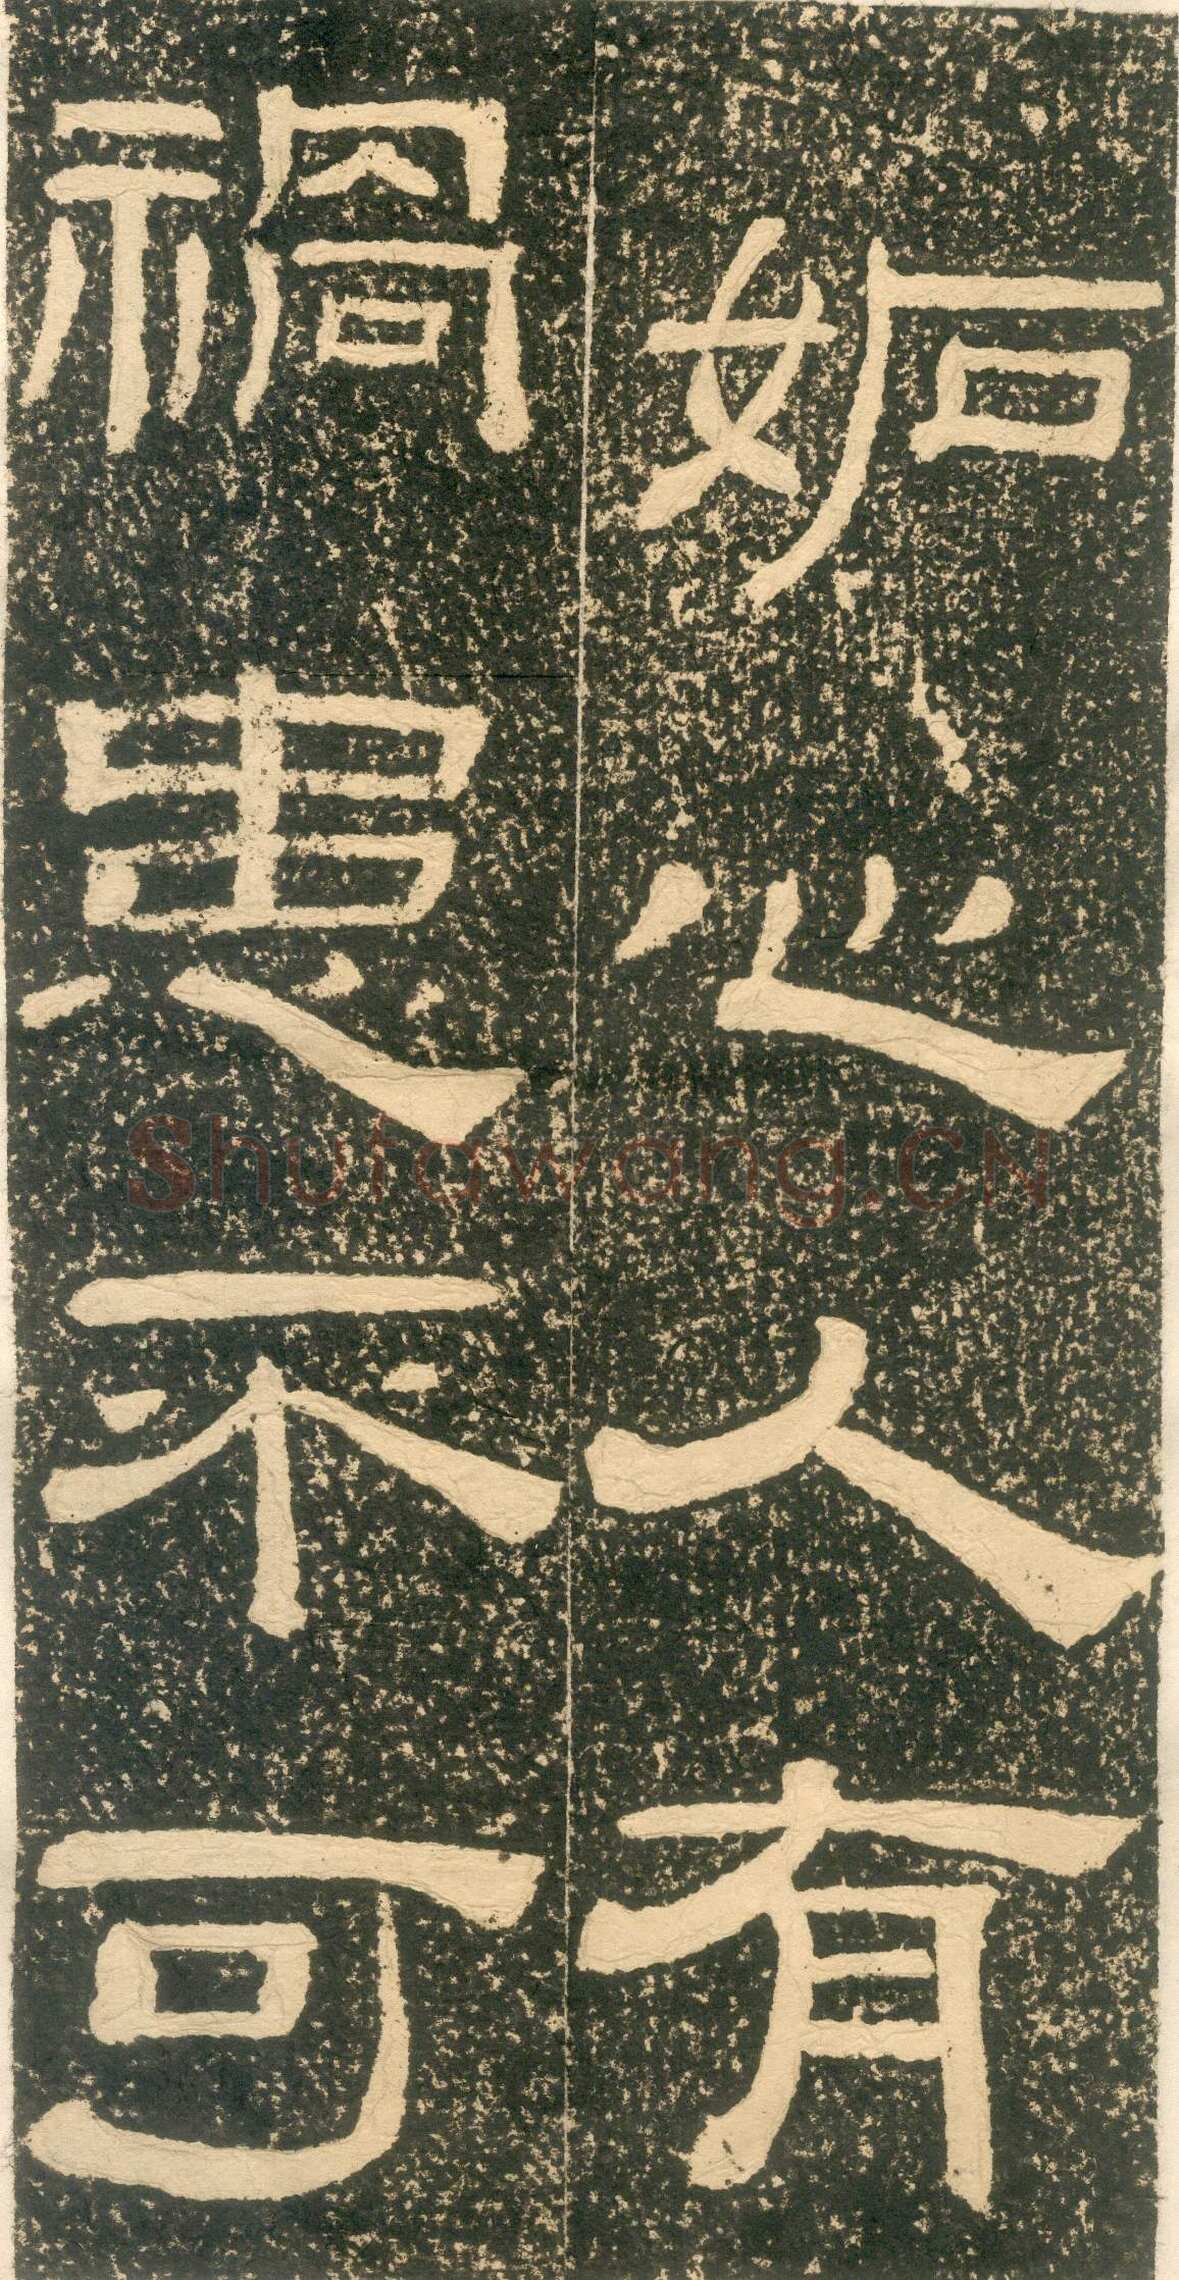 妬心人有
禍患不可
Shufawang.CN